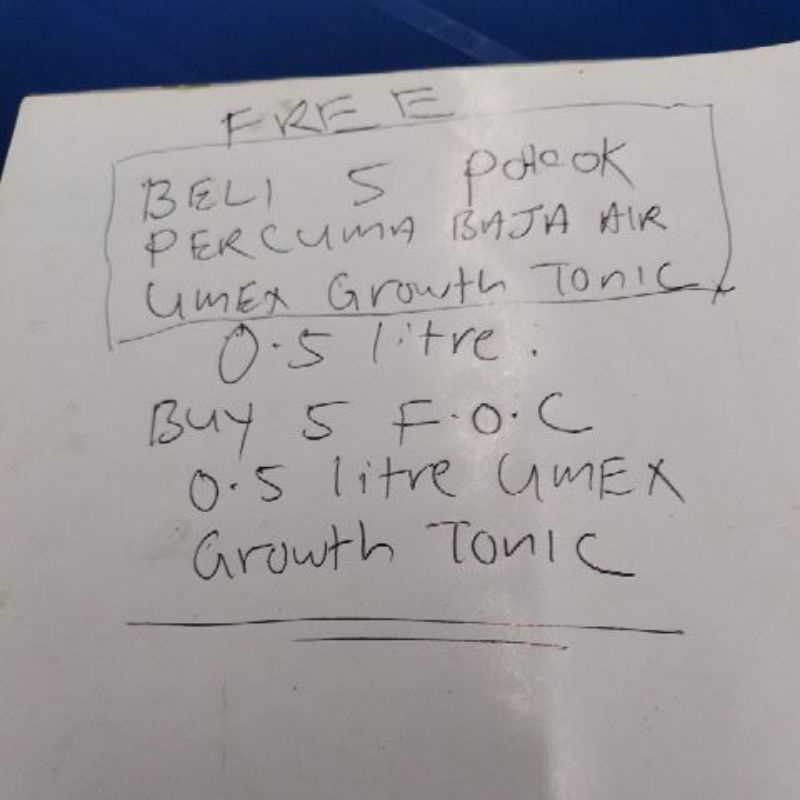 FREE
BELI 5 POKOK
PERCUMA BAJA AIR
UMEX Growth TONIC
0.5 litre.
BUY 5 F.O.C
0.5 litre UMEX
Growth TONIC